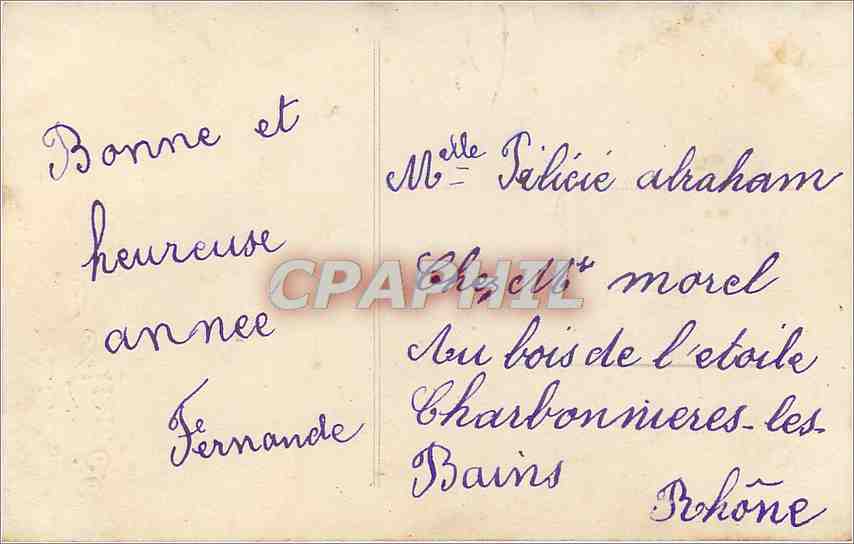 Bonne et
heureuse
annee
Fernande
Melle Félicié abraham
Chez Mr morel
Au bois de l'etoile
Charbonnieres-les-
Bains
Rhône
CPAPHIL